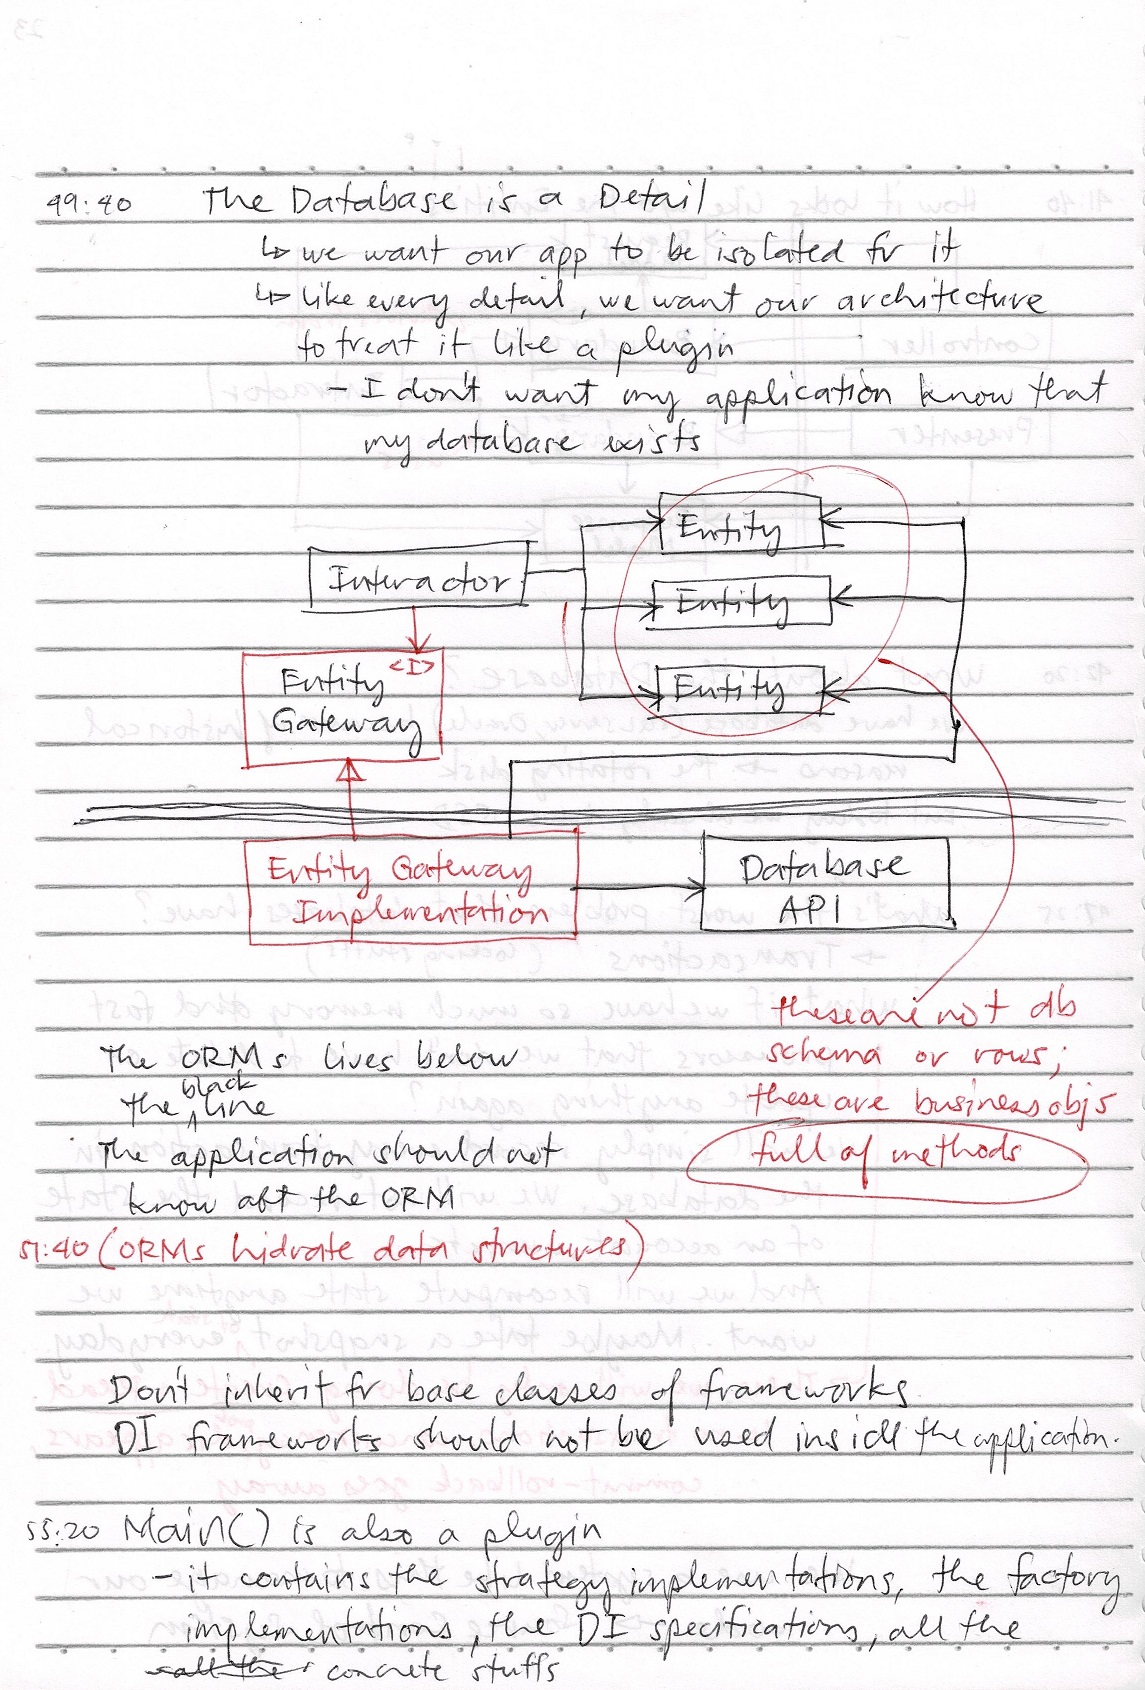 49:40 The Database is a Detail
↳ we want our app to be isolated fr it
↳ like every detail, we want our architecture
to treat it like a plugin
- I don't want my application know that
my database exists
Entity
Interactor
Entity
<I>
Entity
Entity
Gateway
Entity Gateway
Implementation
Database
API
these are not db
schema or rows;
these are business objs
full of methods
The ORMs lives below
the black line
The application should not
know abt the ORM
51:40 (ORMs hidrate data structures)
Don't inherit fr base classes of frameworks.
DI frameworks should not be used inside the application.
55:20 Main() is also a plugin
- it contains the strategy implementations, the factory
implementations, the DI specifications, all the
all the concrete stuffs